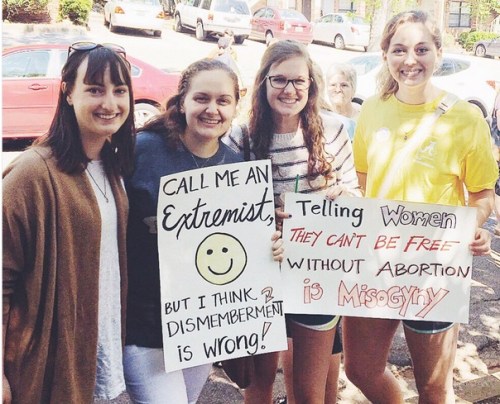 CALL ME AN
Extremist,
BUT I THINK
DISMEMBERMENT
is WRONG!
Telling Women
THEY CAN'T BE FREE
WITHOUT ABORTION
is MISOGYNY